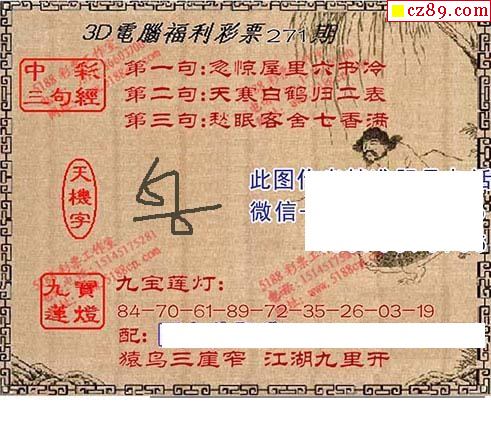 cz89.com
3D電腦福利彩票271期
中彩
三句經
第一句:忽惊屋里六书冷
第二句:天寒白鹤归二表
第三句:愁眠客舍七香满
天機字
此图
微信
5188 彩票工作室
15145175281
www.5188en.com
九寶
蓮燈
九宝莲灯:
84-70-61-89-72-35-26-03-19
配:
猿鸟三崖窄 江湖九里开